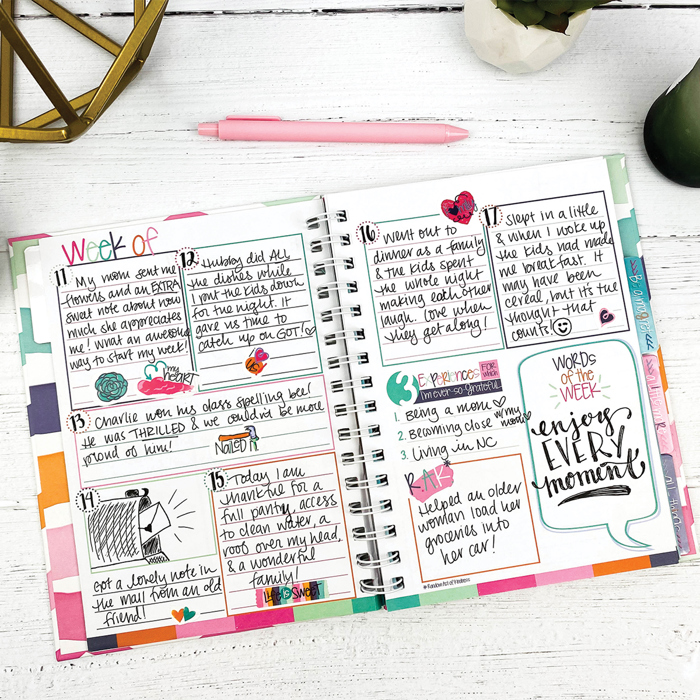 Week of
11
My mom sent me
flowers and an EXTRA
sweet note about how
much she appreciates
me! What an awesome
way to start my week!
my
heart
12
Hubby did ALL
the dishes while
I put the kids down
for the night. It
gave us time to
catch up on GOT!
13
Charlie won his class spelling bee!
He was THRILLED & we couldn't be more
proud of him!
Nailed it
14
Got a lovely note in
the mail from an old
friend!
15
Today I am
thankful for a
full pantry, access
to clean water, a
roof over my head,
& a wonderful
family!
Life is Sweet
16
Went out to
dinner as a family
& the kids spent
the whole night
making each other
laugh. Love when
they get along!
17
Slept in a little
& when I woke up
the kids had made
me breakfast. It
may have been
cereal, but it's the
thought that
counts!
3 Experiences FOR WHICH
I'm ever-so-grateful
1. Being a mom
2. Becoming close w/ my mom
3. Living in NC
R.A.K.
Helped an older
woman load her
groceries into
her car!
#Random Act of Kindness
WORDS
of the
WEEK
enjoy
EVERY
moment